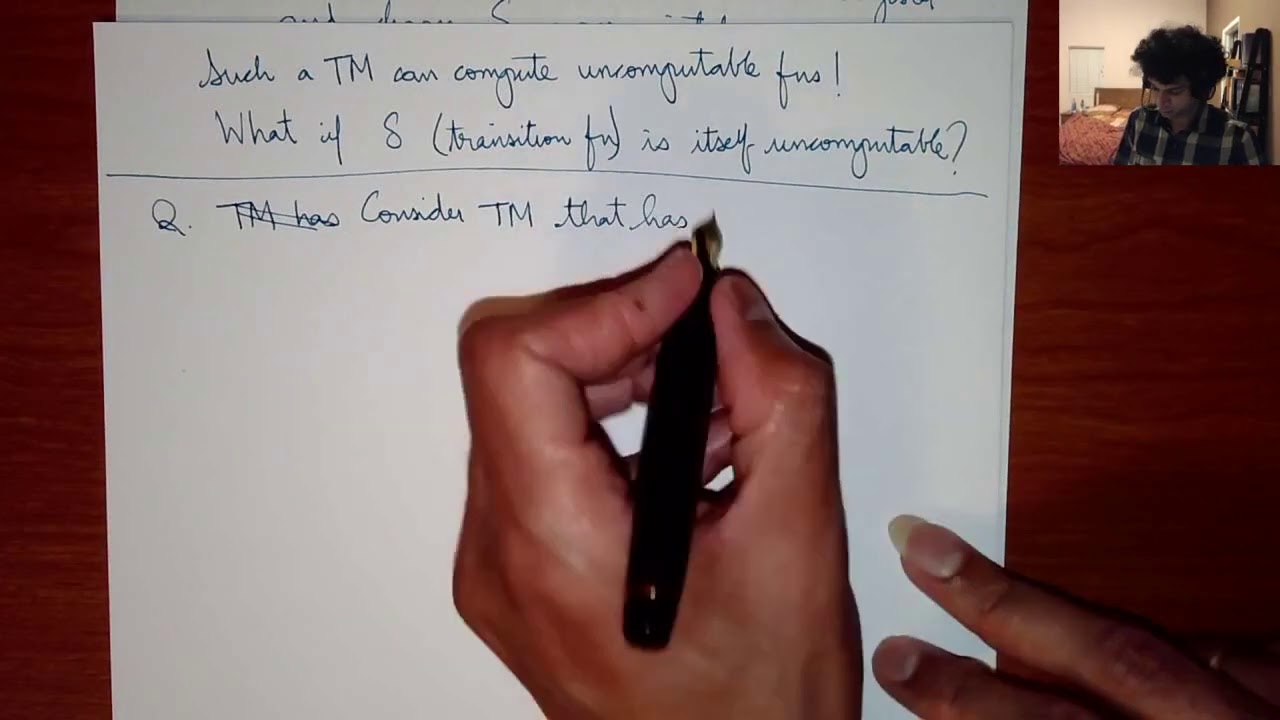 Such a TM can compute uncomputable fns!
What if δ (transition fn) is itself uncomputable?
Q. TM has Consider TM that has